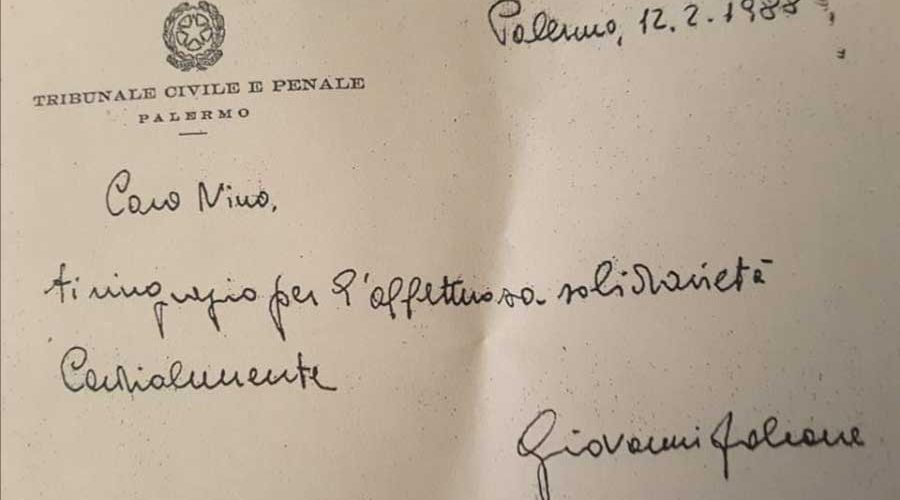 Palermo, 12.2.1988
TRIBUNALE CIVILE E PENALE
PALERMO
Caro Nino,
ti ringrazio per l'affettuosa solidarietà
Cordialmente
Giovanni Falcone